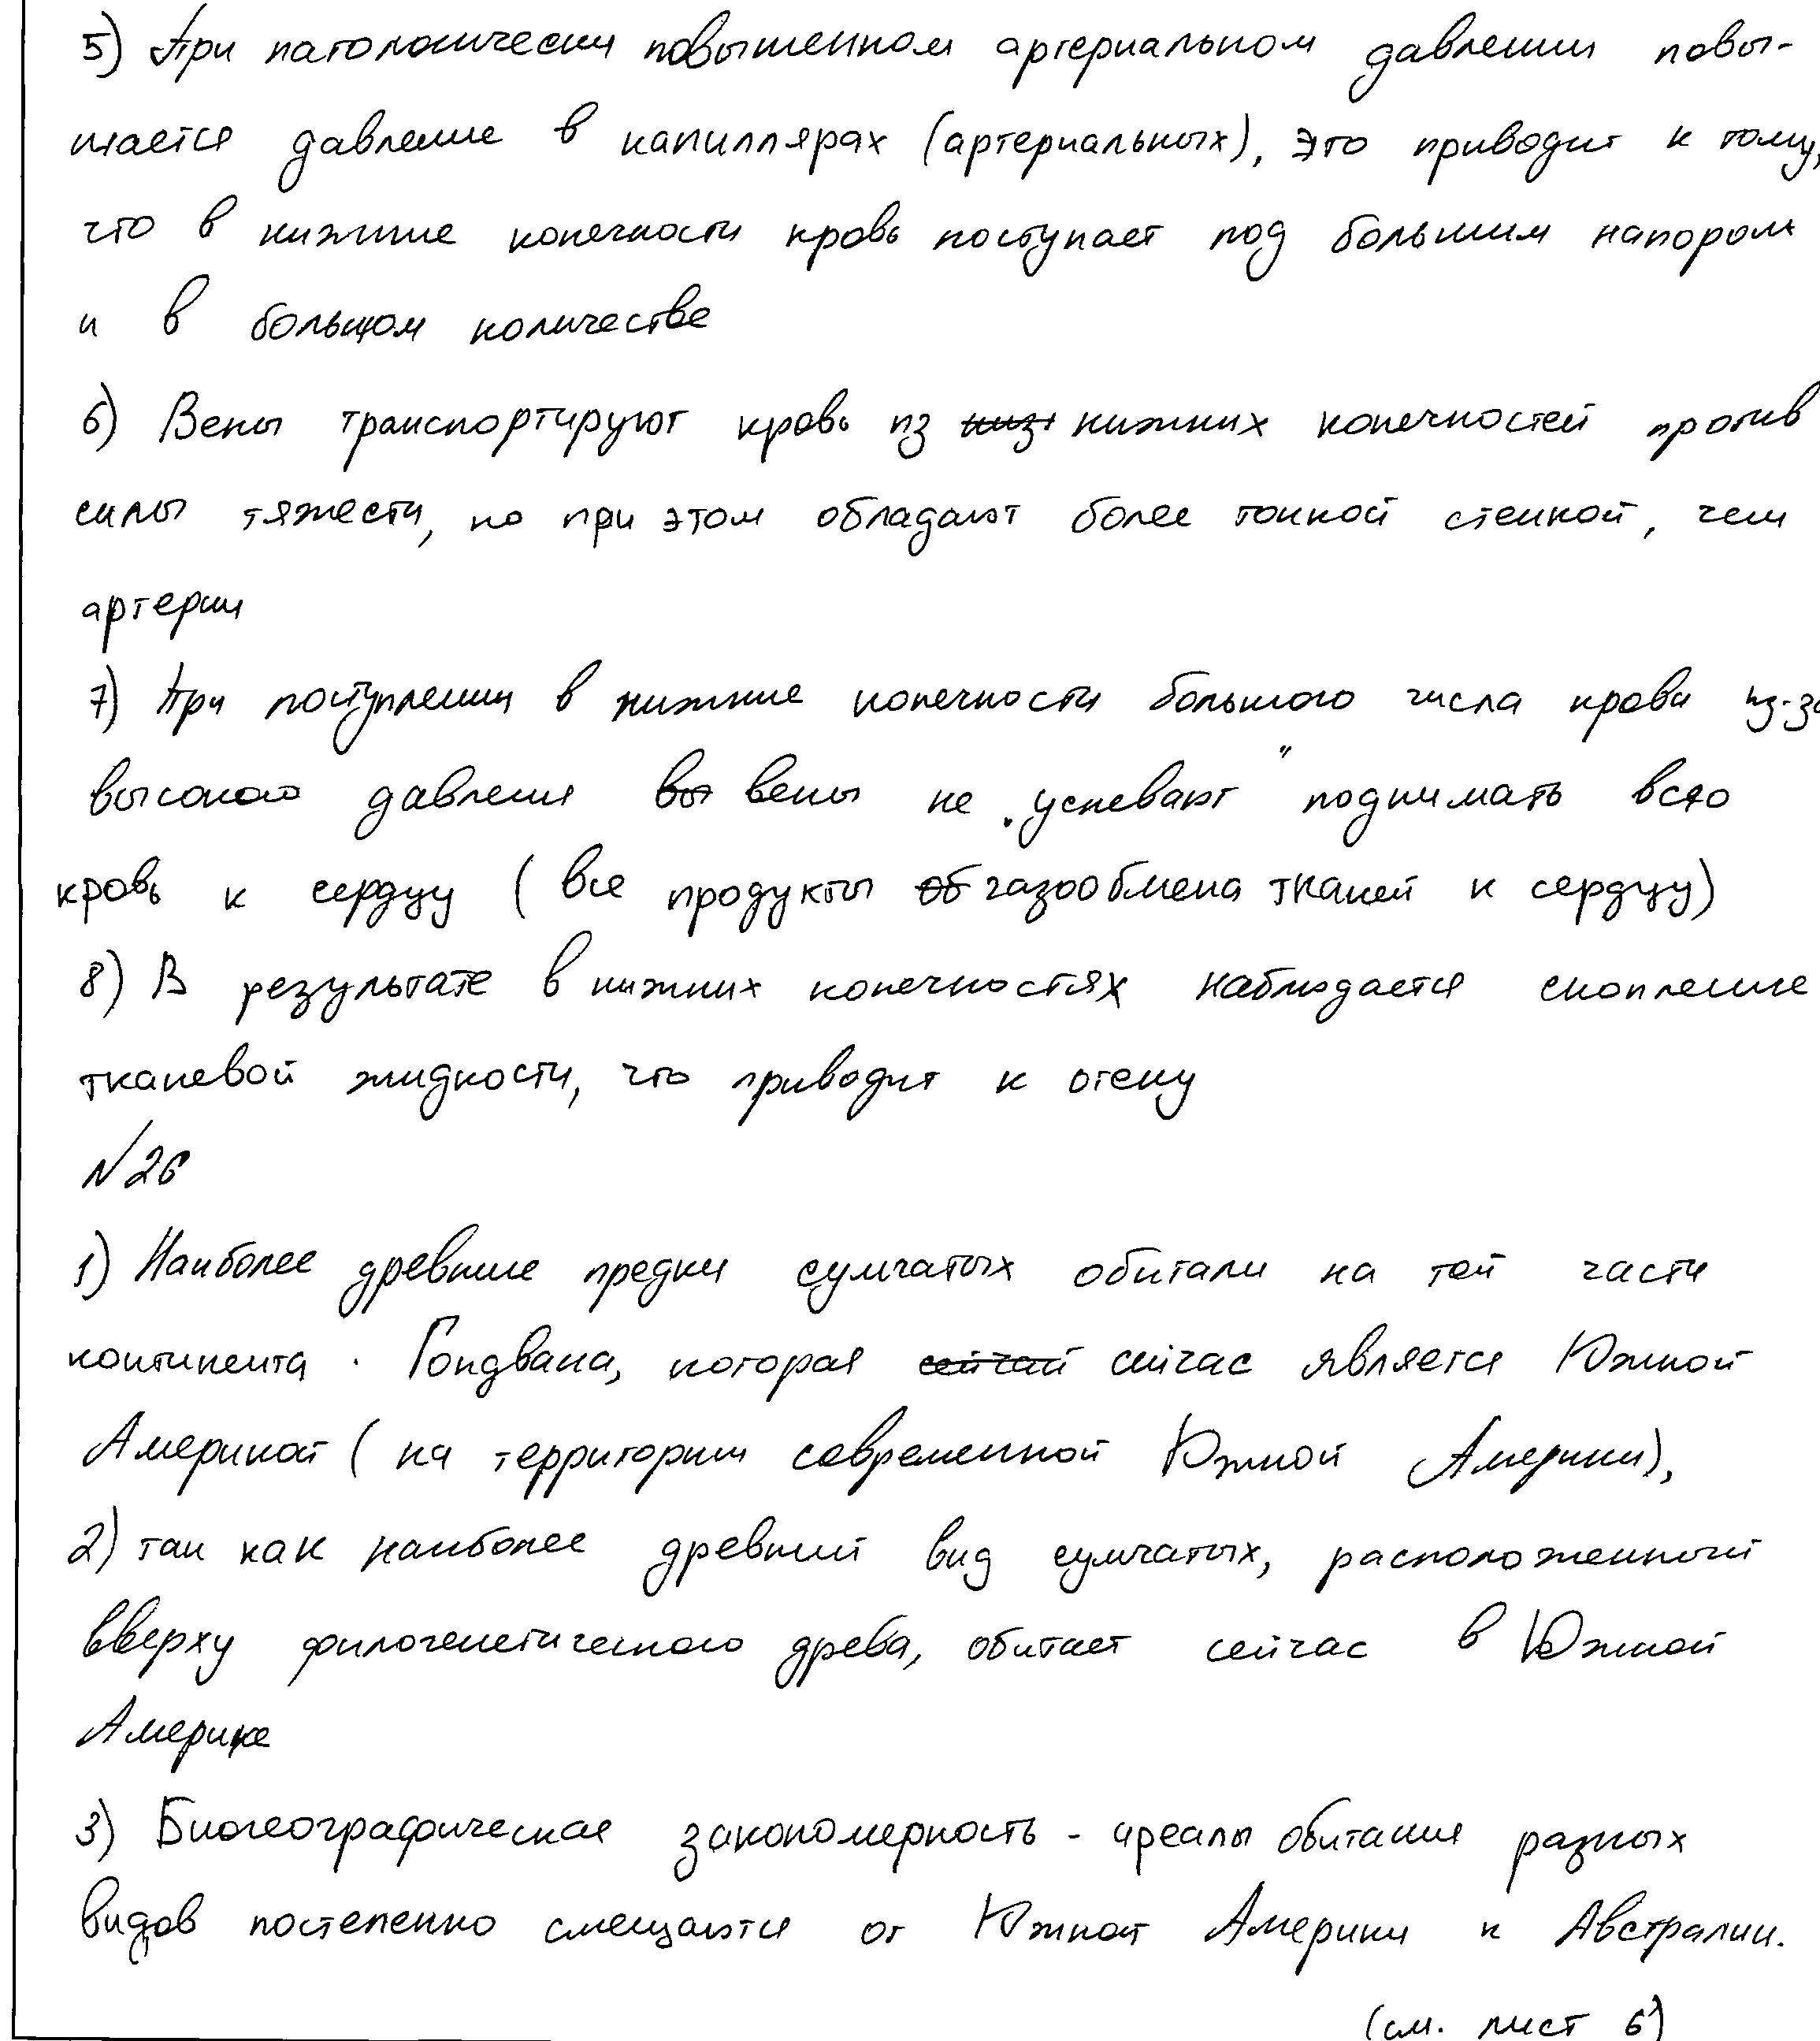 5) При патологически повышенном артериальном давлении повы-
шается давление в капиллярах (артериальных), это приводит к тому,
что в нижние конечности кровь поступает под большим напором
и в большом количестве
6) Вены транспортируют кровь из низ нижних конечностей против
силы тяжести, но при этом обладают более тонкой стенкой, чем
артерии
7) При поступлении в нижние конечности большого числа крови из-за
высокого давления вы вены не "успевают" поднимать всю
кровь к сердцу (все продукты об газообмена тканей к сердцу)
8) В результате в нижних конечностях наблюдается скопление
тканевой жидкости, что приводит к отеку
№26
1) Наиболее древние предки сумчатых обитали на той части
континента Гондвана, которая сейчай сейчас является Южной
Америкой (на территории современной Южной Америки),
2) так как наиболее древний вид сумчатых, расположенный
вверху филогенетического древа, обитает сейчас в Южной
Америке
3) Биогеографическая закономерность - ареалы обитания разных
видов постепенно смещаются от Южной Америки к Австралии.
(см. лист 6)